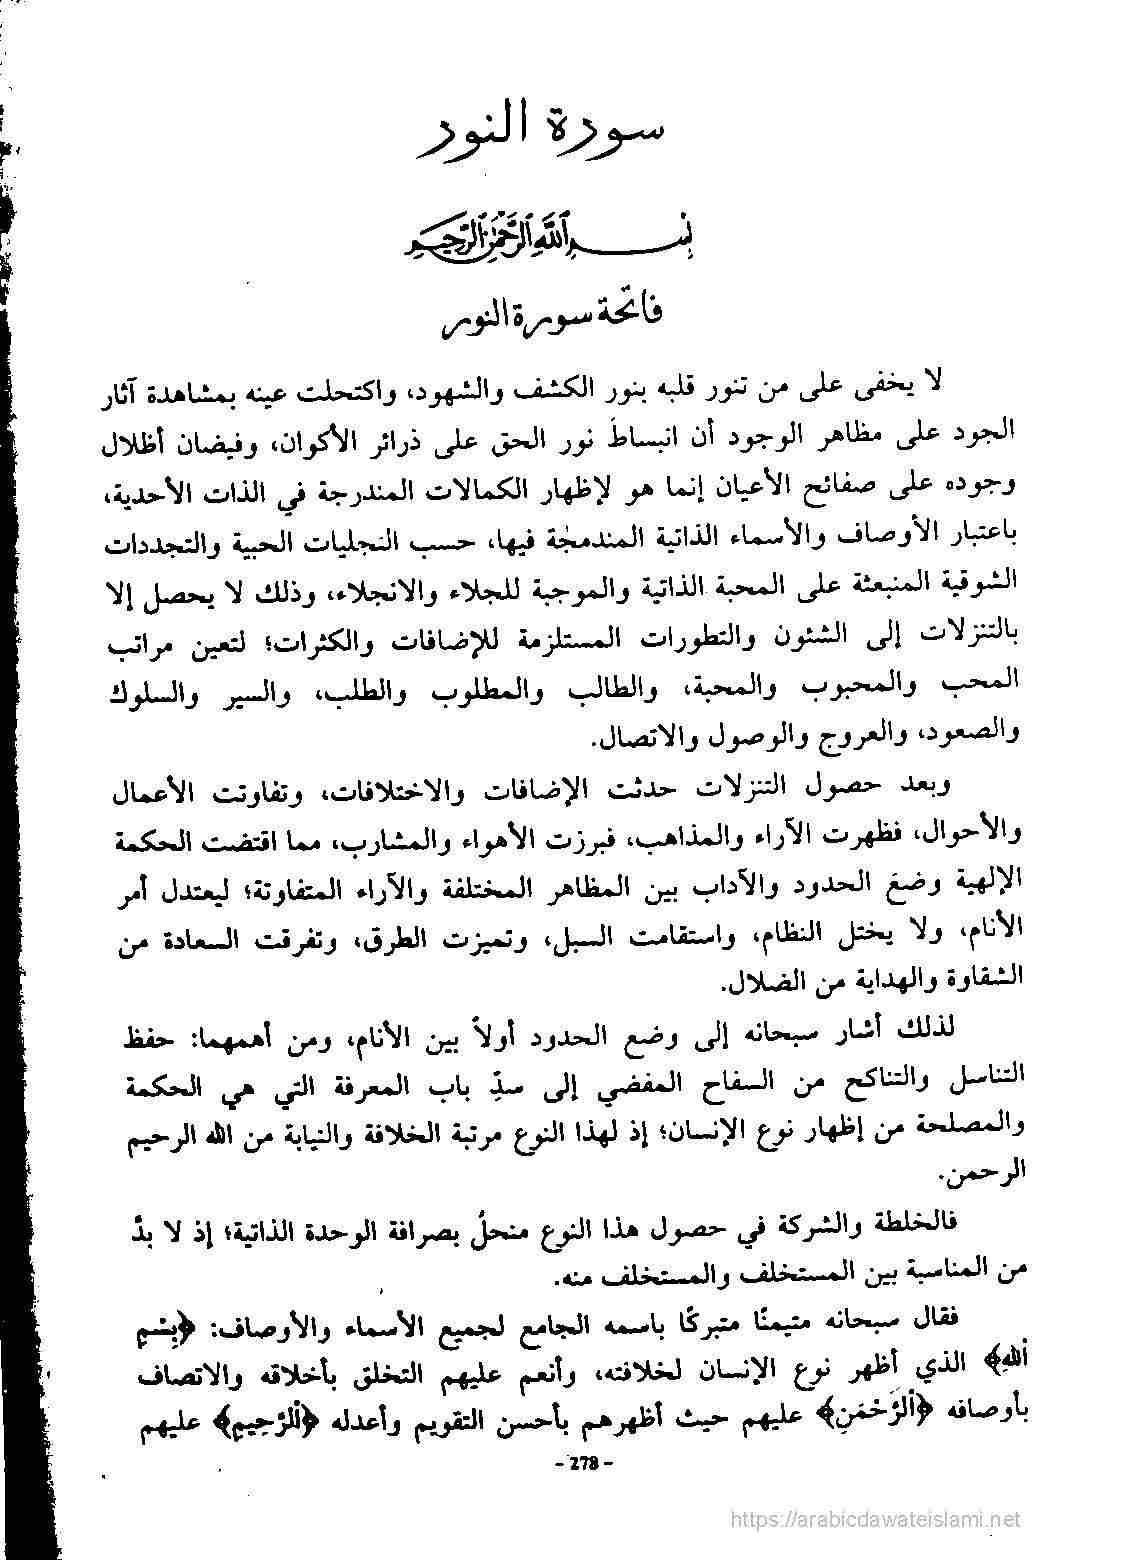 سورة النور
بِسْمِ ٱللَّهِ ٱلرَّحْمَٰنِ ٱلرَّحِيمِ
فاتحة سورة النور
لا يخفى على من تنور قلبه بنور الكشف والشهود، واكتحلت عينه بمشاهدة آثار
الجود على مظاهر الوجود أن انبساطَ نور الحق على ذرائر الأكوان، وفيضان أظلال
وجوده على صفائح الأعيان إنما هو لإظهار الكمالات المندرجة في الذات الأحدية،
باعتبار الأوصاف والأسماء الذاتية المندمجة فيها، حسب التجليات الحبية والتجددات
الشوقية المنبعثة على المحبة الذاتية والموجبة للجلاء والانجلاء، وذلك لا يحصل إلا
بالتنزلات إلى الشئون والتطورات المستلزمة للإضافات والكثرات؛ لتعين مراتب
المحب والمحبوب والمحبة، والطالب والمطلوب والطلب، والسير والسلوك
والصعود، والعروج والوصول والاتصال.
وبعد حصول التنزلات حدثت الإضافات والاختلافات، وتفاوتت الأعمال
والأحوال، فظهرت الآراء والمذاهب، فبرزت الأهواء والمشارب، مما اقتضت الحكمة
الإلهية وضعَ الحدود والآداب بين المظاهر المختلفة والآراء المتفاوتة؛ ليعتدل أمر
الأنام، ولا يختل النظام، واستقامت السبل، وتميزت الطرق، وتفرقت السعادة من
الشقاوة والهداية من الضلال.
لذلك أشار سبحانه إلى وضع الحدود أولاً بين الأنام، ومن أهمهما: حفظ
التناسل والتناكح من السفاح المفضي إلى سدِّ باب المعرفة التي هي الحكمة
والمصلحة من إظهار نوع الإنسان؛ إذ لهذا النوع مرتبة الخلافة والنيابة من الله الرحيم
الرحمن.
فالخلطة والشركة في حصول هذا النوع منحلٌ بصرافة الوحدة الذاتية؛ إذ لا بدَّ
من المناسبة بين المستخلف والمستخلف منه.
فقال سبحانه متيمنًا متبركًا باسمه الجامع لجميع الأسماء والأوصاف: ﴿بِسْمِ
ٱللهِ﴾ الذي أظهر نوع الإنسان لخلافته، وأنعم عليهم التخلق بأخلاقه والاتصاف
بأوصافه ﴿ٱلرَّحْمَنِ﴾ عليهم حيث أظهرهم بأحسن التقويم وأعدله ﴿ٱلرَّحِيمِ﴾ عليهم
- 278 -
https://arabicdawateislami.net